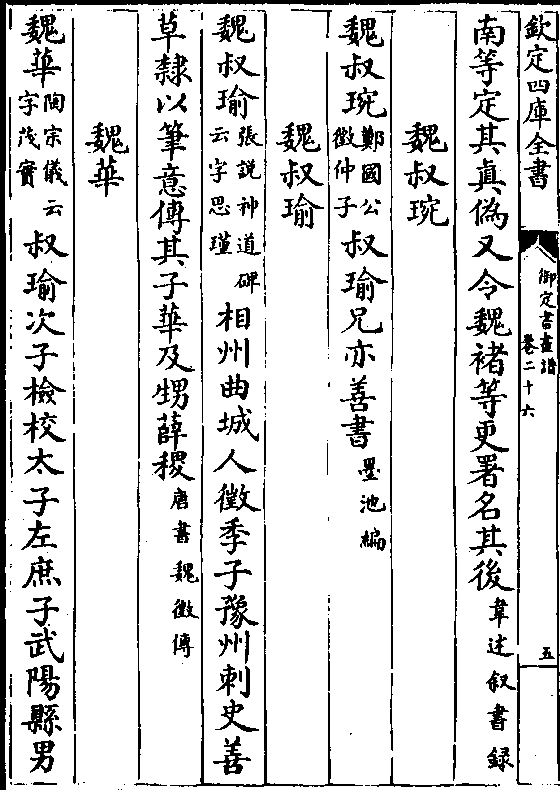 欽定四庫全書
御定書畫譜
卷二十六
五
南等定其真偽又令魏褚等更署名其後韋述叙書錄
魏叔琬
魏叔琬鄭國公徵仲子叔瑜兄亦善書墨池編
魏叔瑜
魏叔瑜張說神道碑云字思瑾相州曲城人徵季子豫州刺史善
草隸以筆意傅其子華及甥薛稷唐書魏徵傅
魏華
魏華陶宗儀云字茂實叔瑜次子檢校太子左庶子武陽縣男